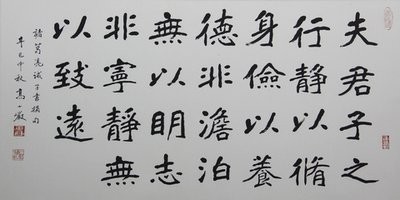 夫君子之
行静以脩
身儉以養
德非澹泊
無以明志
非寧静無
以致遠
諸葛亮誡子書摘句
辛巳中秋